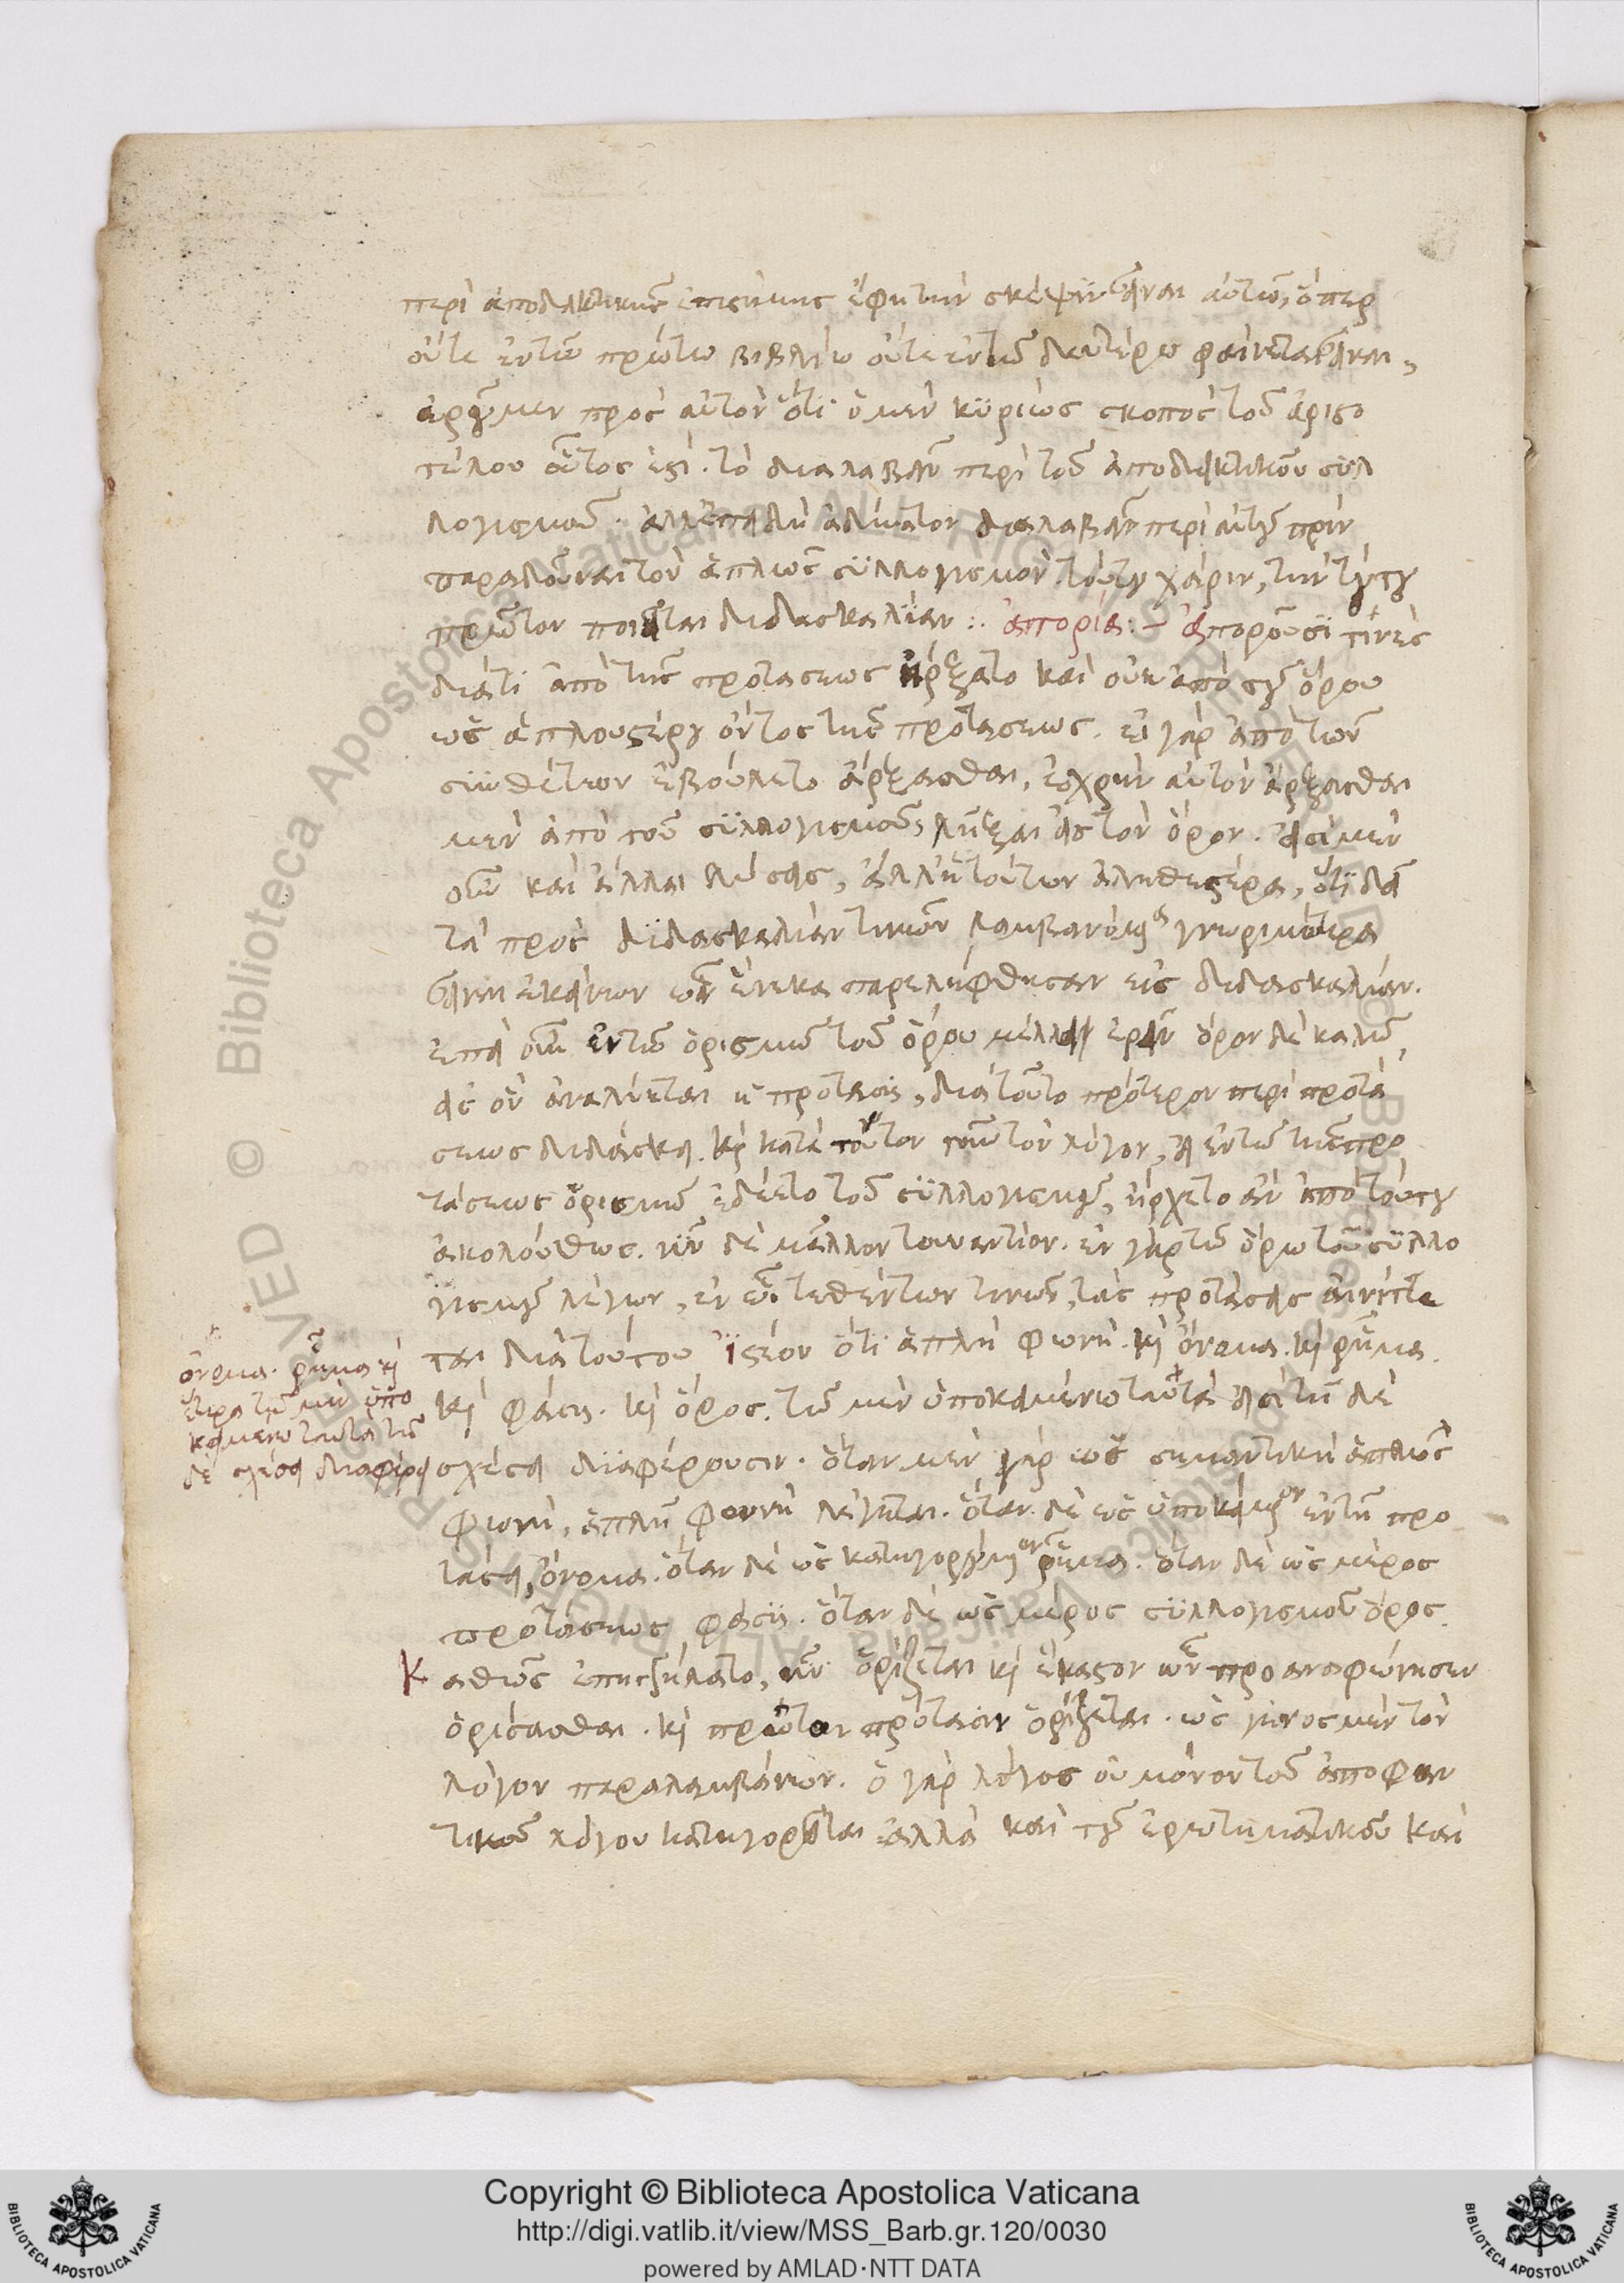 περὶ ἀποδεικτικῆς ἐπιστήμης ἔφη τὴν σκέψιν εἶναι αὐτῶ, ὅπερ
οὔτε ἐν τῶ πρώτω βιβλίω οὔτε ἐν τῶ δευτέρω φαίνεται εἶναι,
ἐροῦμεν πρὸς αὐτὸν ὅτι ὁ μὲν κυρίως σκοπὸς τοῦ ἀριστο
τέλου οὗτος ἐστὶ. τὸ διαλαβεῖν περὶ τοῦ ἀποδεικτικοῦ συλ
λογισμοῦ. ἀλλ' ἐπειδὴ ἀδύνατον διαλαβεῖν περὶ αὐτοῦ πρὶν
παραδοῦναι τὸν ἁπλῶς συλλογισμὸν. τούτου χάριν, τὴν τούτου
πρῶτον ποιεῖται διδασκαλίαν :. ἀπορία :- ἀποροῦσι τινὲς
διατὶ ἀπὸ τῆς προτάσεως ἤρξατο καὶ οὐκ ἀπὸ τοῦ ὅρου
ὡς ἁπλουστέρου ὄντος τῆς προτάσεως. εἰ γὰρ ἀπὸ τῶν
συνθέτων ἐβούλετο ἄρξασθαι, ἐχρῆν αὐτὸν ἄρξασθαι
μὲν ἀπὸ τοῦ συλλογισμοῦ, λῆξαι εἰς τὸν ὅρον. εἰσὶ μὲν
οὖν καὶ ἄλλαι λύσεις, ἀλλ' ἡ τούτων ἀληθεστέρα, ὅτι δεῖ
τὰ πρὸς διδασκαλίαν τινῶν λαμβανόμενα γνωριμώτερα
εἶναι ἐκείνων ὧν ἕνεκα παρελήφθησαν εἰς διδασκαλίαν.
ἐπεὶ οὖν ἐν τῶ ὁρισμῶ τοῦ ὅρου μέλλει ἐρεῖν ὅρον δὲ καλῶ
εἰς ὃν ἀναλύεται ἡ πρότασις, διὰ τοῦτο πρότερον περὶ προτά
σεως διδάσκει. κὶ κατὰ τοῦτον γοῦν τὸν λόγον, εἰ ἐν τῶ τῆς προ
τάσεως ὁρισμῶ ἐδέετο τοῦ συλλογισμοῦ, ἤρχετο ἂν ἀπὸ τούτου
ἀκολούθως. νῦν δὲ μᾶλλον τουναντίον. ἐν γὰρ τῶ ὅρω τοῦ συλλο
γισμοῦ λέγων, ἐν ὧ τεθέντων τινῶν, τὰς προτάσεις αἰνίττε
ται διὰ τούτου ἰστέον ὅτι ἁπλῆ φωνὴ. κὶ ὄνομα. κὶ ῥῆμα.
κὶ φάσις. κὶ ὅρος. τῶ μὲν ὑποκειμένω ταὐτά εἰσι τῆ δὲ
σχέσει διαφέρουσιν. ὅταν μὲν γὰρ ὡς σημαντικὴ ἁπλῶς
φωνὴ, ἁπλῆ φωνὴ λέγεται. ὅταν δὲ ὡς ὑποκείμενον ἐν τῆ προ
τάσει, ὄνομα. ὅταν δὲ ὡς κατηγορούμενον ῥῆμα. ὅταν δὲ ὡς μέρος
προτάσεως φάσις. ὅταν δὲ ὡς μέρος συλλογισμοῦ ὅρος.
Καθὼς ἐπηγγείλατο, νῦν ὁρίζεται κὶ ἕκαστον ὧν προανεφώνησεν
ὁρίσασθαι. κὶ πρῶτον πρότασιν ὁρίζεται. ὡς γένος μὲν τὸν
λόγον παραλαμβάνων. ὁ γὰρ λόγος οὐ μόνον τοῦ ἀποφαν
τικοῦ λόγου κατηγορεῖται ἀλλὰ καὶ τοῦ ἐρωτηματικοῦ καὶ
ὄνομα. ῥῆμα κὶ
τῶ μὲν ὑπο
κειμένω ταυτὰ τῆ
δὲ σχέσει διαφέρει
Copyright © Biblioteca Apostolica Vaticana
http://digi.vatlib.it/view/MSS_Barb.gr.120/0030
powered by AMLAD·NTT DATA
BIBLIOTECA APOSTOLICA VATICANA
BIBLIOTECA APOSTOLICA VATICANA